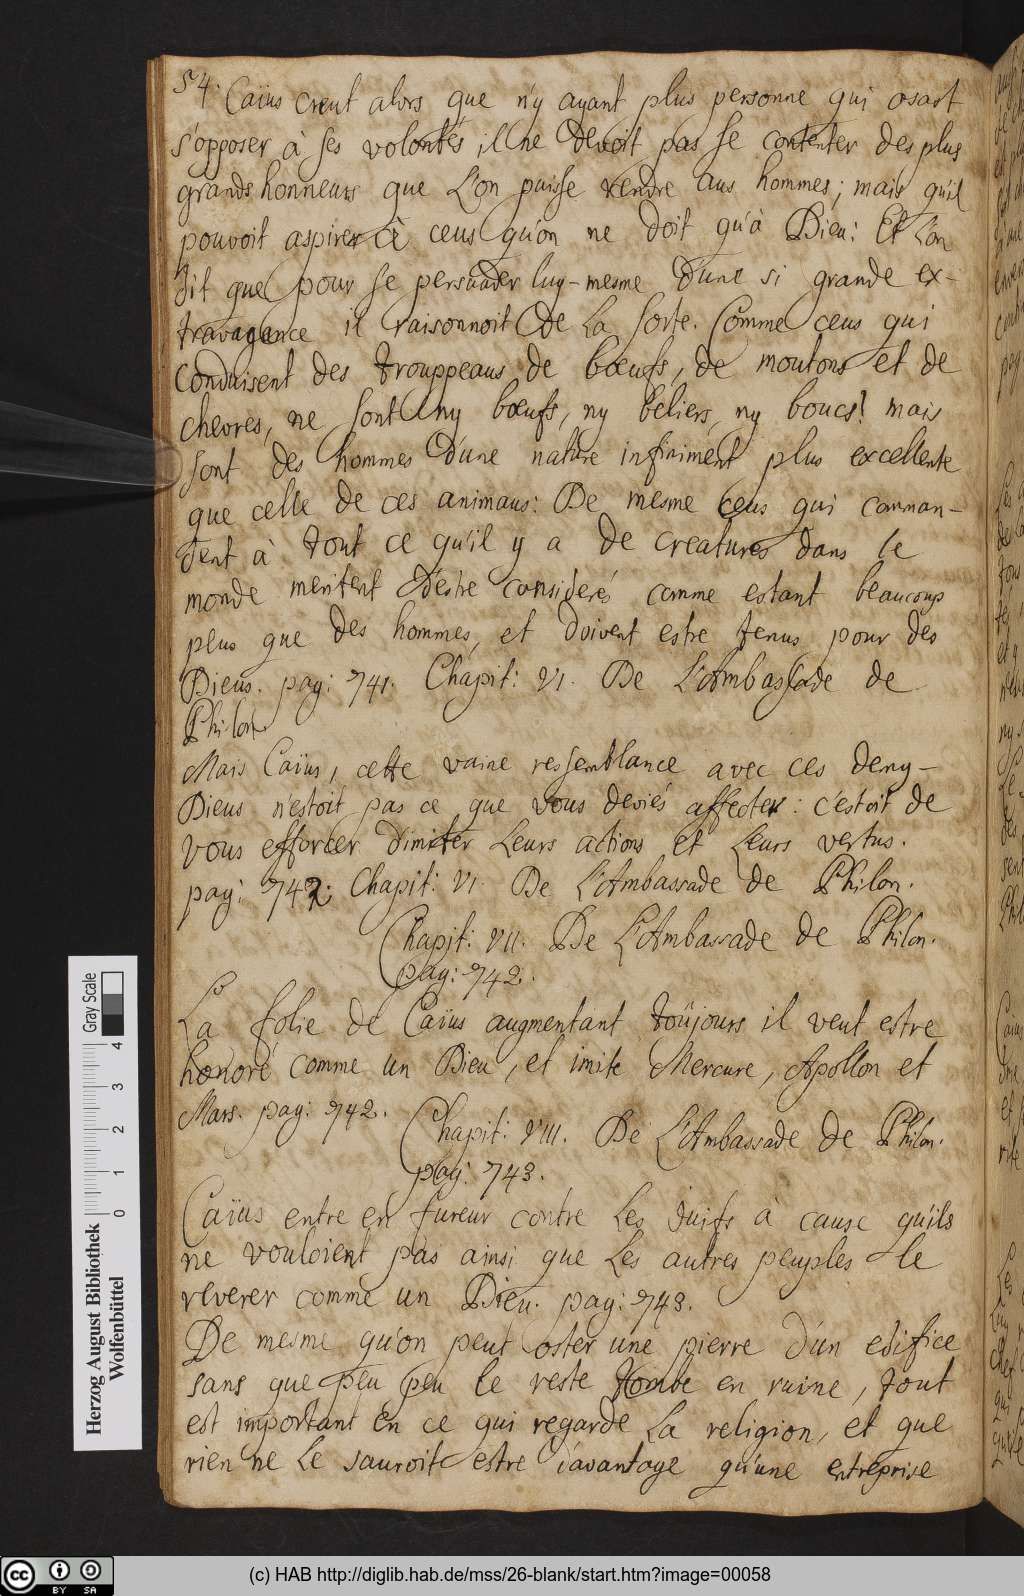 54.
Caïus creut alors que n'y ayant plus personne qui osast
s'opposer à ses volontés, il ne devoit pas se contenter des plus
grands honneurs que L'on puisse rendre aus hommes; mais qu'il
pouvoit aspirer à ceus qu'on ne doit qu'à Dieu: Et L'on
dit que pour se persuader luy-mesme d'une si grande ex-
travagance il raisonnoit de La sorte. Comme ceus qui
conduisent des trouppeaus de bœufs, de moutons et de
chevres, ne sont ny bœufs, ny beliers, ny boucs! mais
sont des hommes d'une nature infiniment plus excellente
que celle de ces animaus: De mesme ceus qui comman-
dent à tout ce qu'il y a de creatures dans le
monde meritent d'estre considerés comme estant beaucoup
plus que des hommes, et doivent estre tenus pour des
Dieus. pag: 741. Chapit: VI. De L'Ambassade de
Philon
Mais Caïus, cette vaine ressemblance avec ces demy-
Dieus n'estoit pas ce que vous deviés affecter: c'estoit de
vous efforcer d'imiter Leurs actions et Leurs vertus.
pag: 742. Chapit: VI De L'Ambassade de Philon.
Chapit: VII. De L'Ambassade de Philon.
pag: 742.
La folie de Caïus augmentant toûjours il veut estre
honoré comme un Dieu, et imite Mercure, Apollon et
Mars. pag: 742.
Chapit: VIII. De L'Ambassade de Philon.
pag: 743.
Caïus entre en fureur contre Les Juifs à cause qu'ils
ne vouloient pas ainsi que Les autres peuples le
reverer comme un Dieu. pag: 743.
De mesme qu'on peut oster une pierre d'un edifice
sans que peu à peu le reste tombe en ruine, tout
est important en ce qui regarde La religion, et que
rien ne Le sauroit estre d'avantage qu'une entreprise
Herzog August Bibliothek
Wolfenbüttel
Gray Scale
0 1 2 3 4
CC BY SA
(c) HAB http://diglib.hab.de/mss/26-blank/start.htm?image=00058